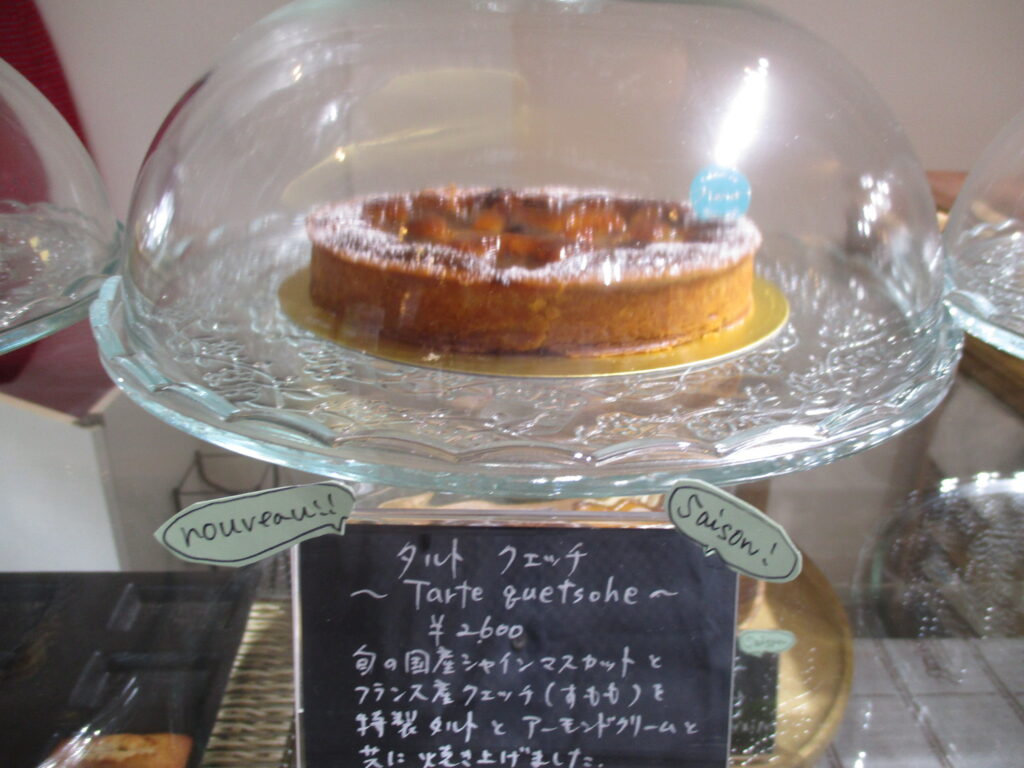 nouveau!!
Saison!
タルト クェッチ
～ Tarte quetsche ～
¥2,600
旬の国産シャインマスカットと
フランス産クェッチ(すもも)を
特製タルトとアーモンドクリームと
共に焼き上げました。